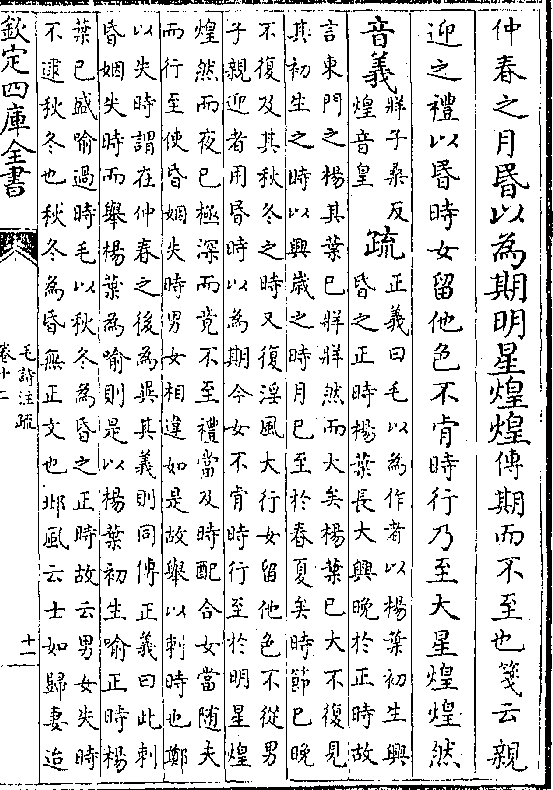 仲春之月昬以為期明星煌煌傳期而不至也箋云親
迎之禮以昬時女留他色不肯時行乃至大星煌煌然
音義牂子桑反
煌音皇疏正義曰毛以為作者以楊葉初生興
昏之正時楊葉長大興晚於正時故
言東門之楊其葉已牂牂然而大矣楊葉已大不復見
其初生之時以興歲之時月已至於春夏矣時節已晚
不復及其秋冬之時又復淫風大行女留他色不從男
子親迎者用昏時以為期今女不肯時行至於明星煌
煌然而夜已極深而竟不至禮當及時配合女當隨夫
而行至使昏姻失時男女相違如是故舉以刺時也鄭
以失時謂在仲春之後為異其義則同傳正義曰此刺
昏姻失時而舉楊葉為喻則是以楊葉初生喻正時楊
葉已盛喻過時毛以秋冬為昏之正時故云男女失時
不逮秋冬也秋冬為昏無正文也邶風云士如歸妻迨
欽定四庫全書
毛詩注疏
卷十二
十一